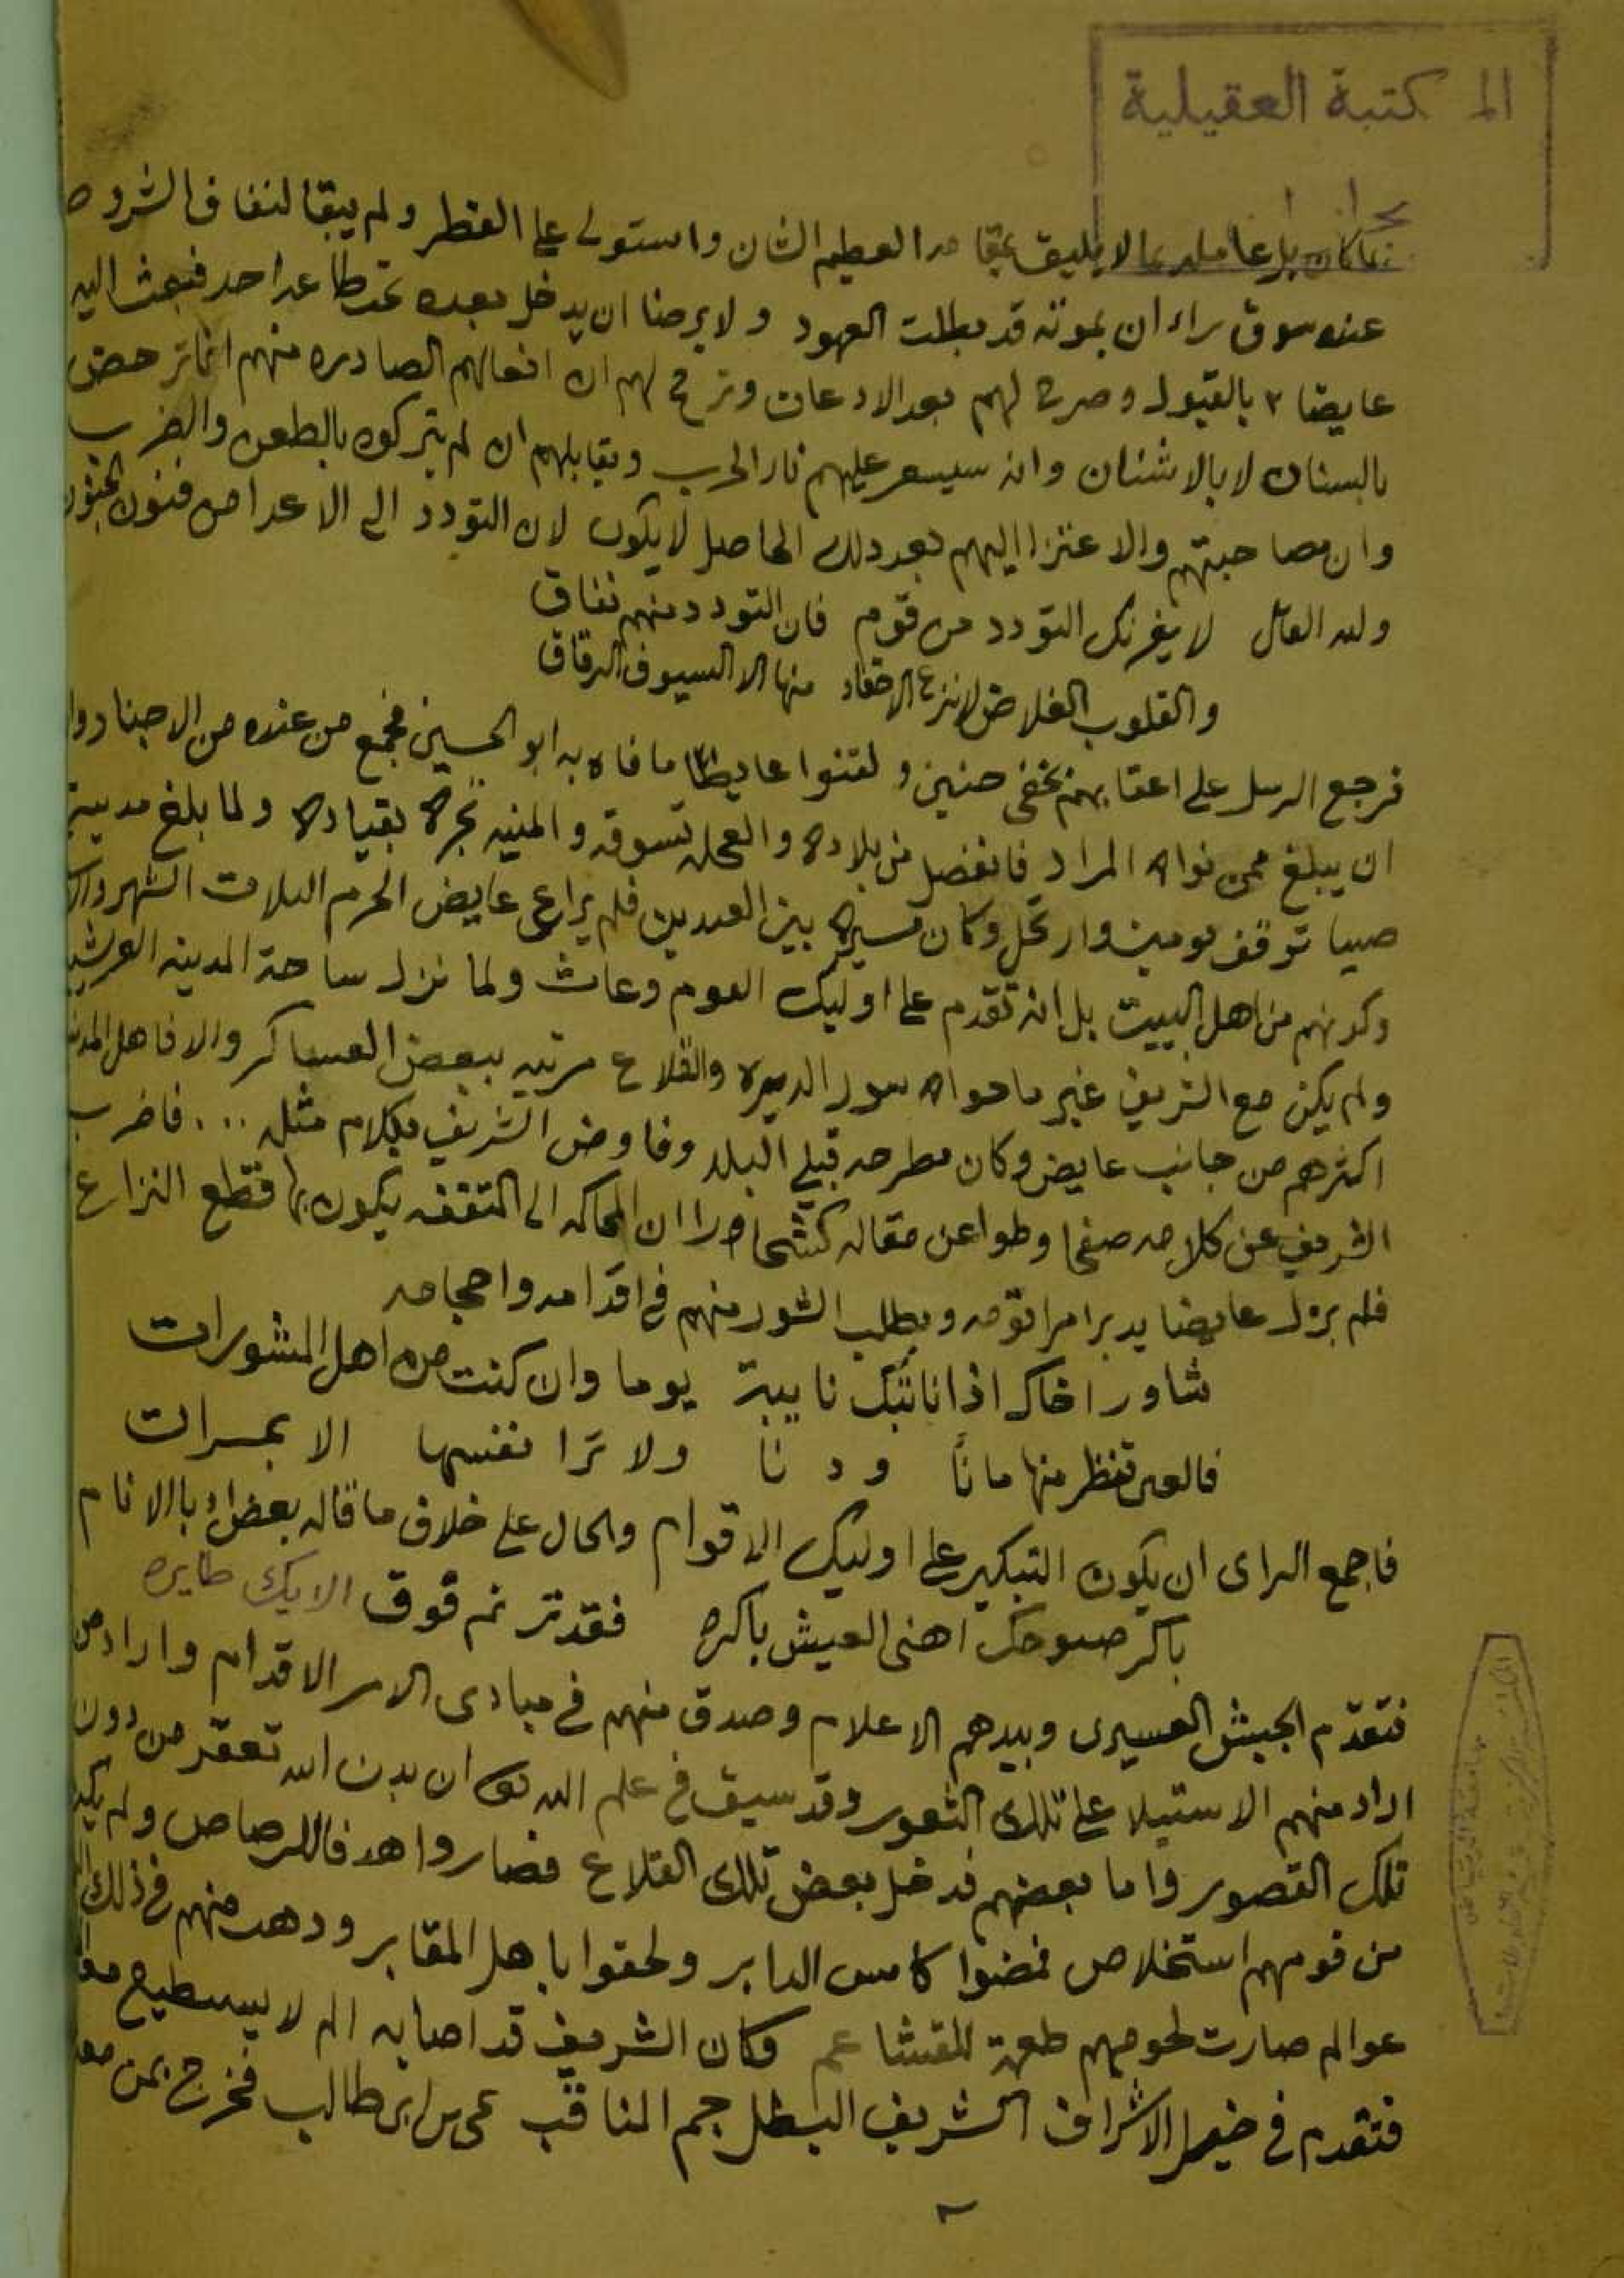 المكتبة العقيلية
بل عامله بما لا يليق بمقامه العظيم الشان واستولى على القطر ولم يبقا لنفاق الشرو
عنده سوق راء ان بموته قد بطلت العهود ولا يرضا ان يدخل بعده تحت طاعه احد فبعث اليه
عايضا بالقبول وصرح لهم بعد الادعان ان افعالهم الصادره منهم انما ترحض
بالسنان لا بالاشنان وانه سيسعر عليهم نار الحرب ويقابلهم ان لم يتركوه بالطعن والضرب
وان مصاحبتهم والاعتزا اليهم بعد ذلك الحاصل لا يكون لان التودد الى الاعدا من فنون الجنون
ولله القائل لا يغرنك التودد من قوم فان التودد منهم نفاق
والقلوب الغلاض لا ينزع الاحقاد منها الا السيوف الرقاق
فرجع الرسل على اعقابهم بخفي حنين ولقنوا عايظا ما فاه به ابو الحسين فجمع من عنده من الاجناد واراد
ان يبلغ ممن نواه المراد فانفصل من بلاده والعجله تسوقه والمنيه تجره بقياده ولما بلغ مدينة
صبيا توقف يومين وارتحل وكان مسيره بين العيدين فلم يراعى عايض الحرم الثلاث الشهر
وكونهم من اهل البيت بل انه تقدم على اوليك القوم وعاث ولما نزل ساحة المدينه العريشيه
ولم يكن مع الشريف غير ما حواه سور الديره والقلاع مرتبه ببعض العساكر والا فاهل المدينه
اكثرهم من جانب عايض وكان مطرحه قبلي البلد وفاوض الشريف بكلام مثله ... فاضرب
الشريف عن كلامه صفحا وطوا عن مقاله كشحا ورا ان المحاكمه الى المثقفه يكون بها قطع النزاع
فلم يزل عايضا يدبر امرا قومه ويطلب الشور منهم في اقدامه واحجامه
شاور اخاك اذا نابتك نايبة يوما وان كنت من اهل المشورات
فالعين تنظر منها ما نأ ودنا ولا ترا نفسها الا بمرات
فاجمع الراى ان يكون التبكير على اوليك الاقوام والحال على خلاف ما قاله بعض ادبا الانام
باكر صبوحك اهنى العيش باكره فقد ترنم فوق الايك طايره
فتقدم الجيش العسيرى وبيدهم الاعلام وصدق منهم في مبادى الامر الاقدام واراد من
اراد منهم الاستيلا على تلك الثغور وقد سبق في علم الله ان بدن الله تعقر من دون
تلك القصور واما بعضهم فدخل بعض تلك القلاع فصاروا هدفا للرصاص ولم يكن
من قومهم استخلاص فمضوا كامس الدابر ولحقوا باهل المقابر وذهب منهم في ذلك
عوالم صارت لحومهم طعمة للقشاعم وكان الشريف قد اصابه الم لا يستطيع معه
فتقدم في خيل الاشراف الشريف البطل جم المناقب على بن ابى طالب فخرج بمن معه